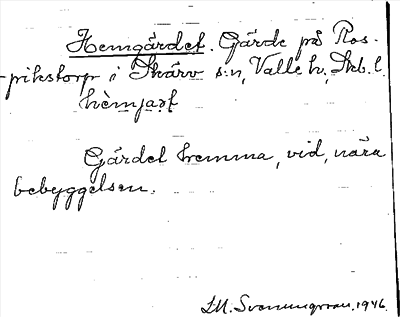 Hemgärdet. Gärde på Ros-
rikstorp i Skärv s:n, Valle h., Skb. l.
hèmjaʒt
Gärdet hemma, vid, nära
bebyggelsen.
1946.